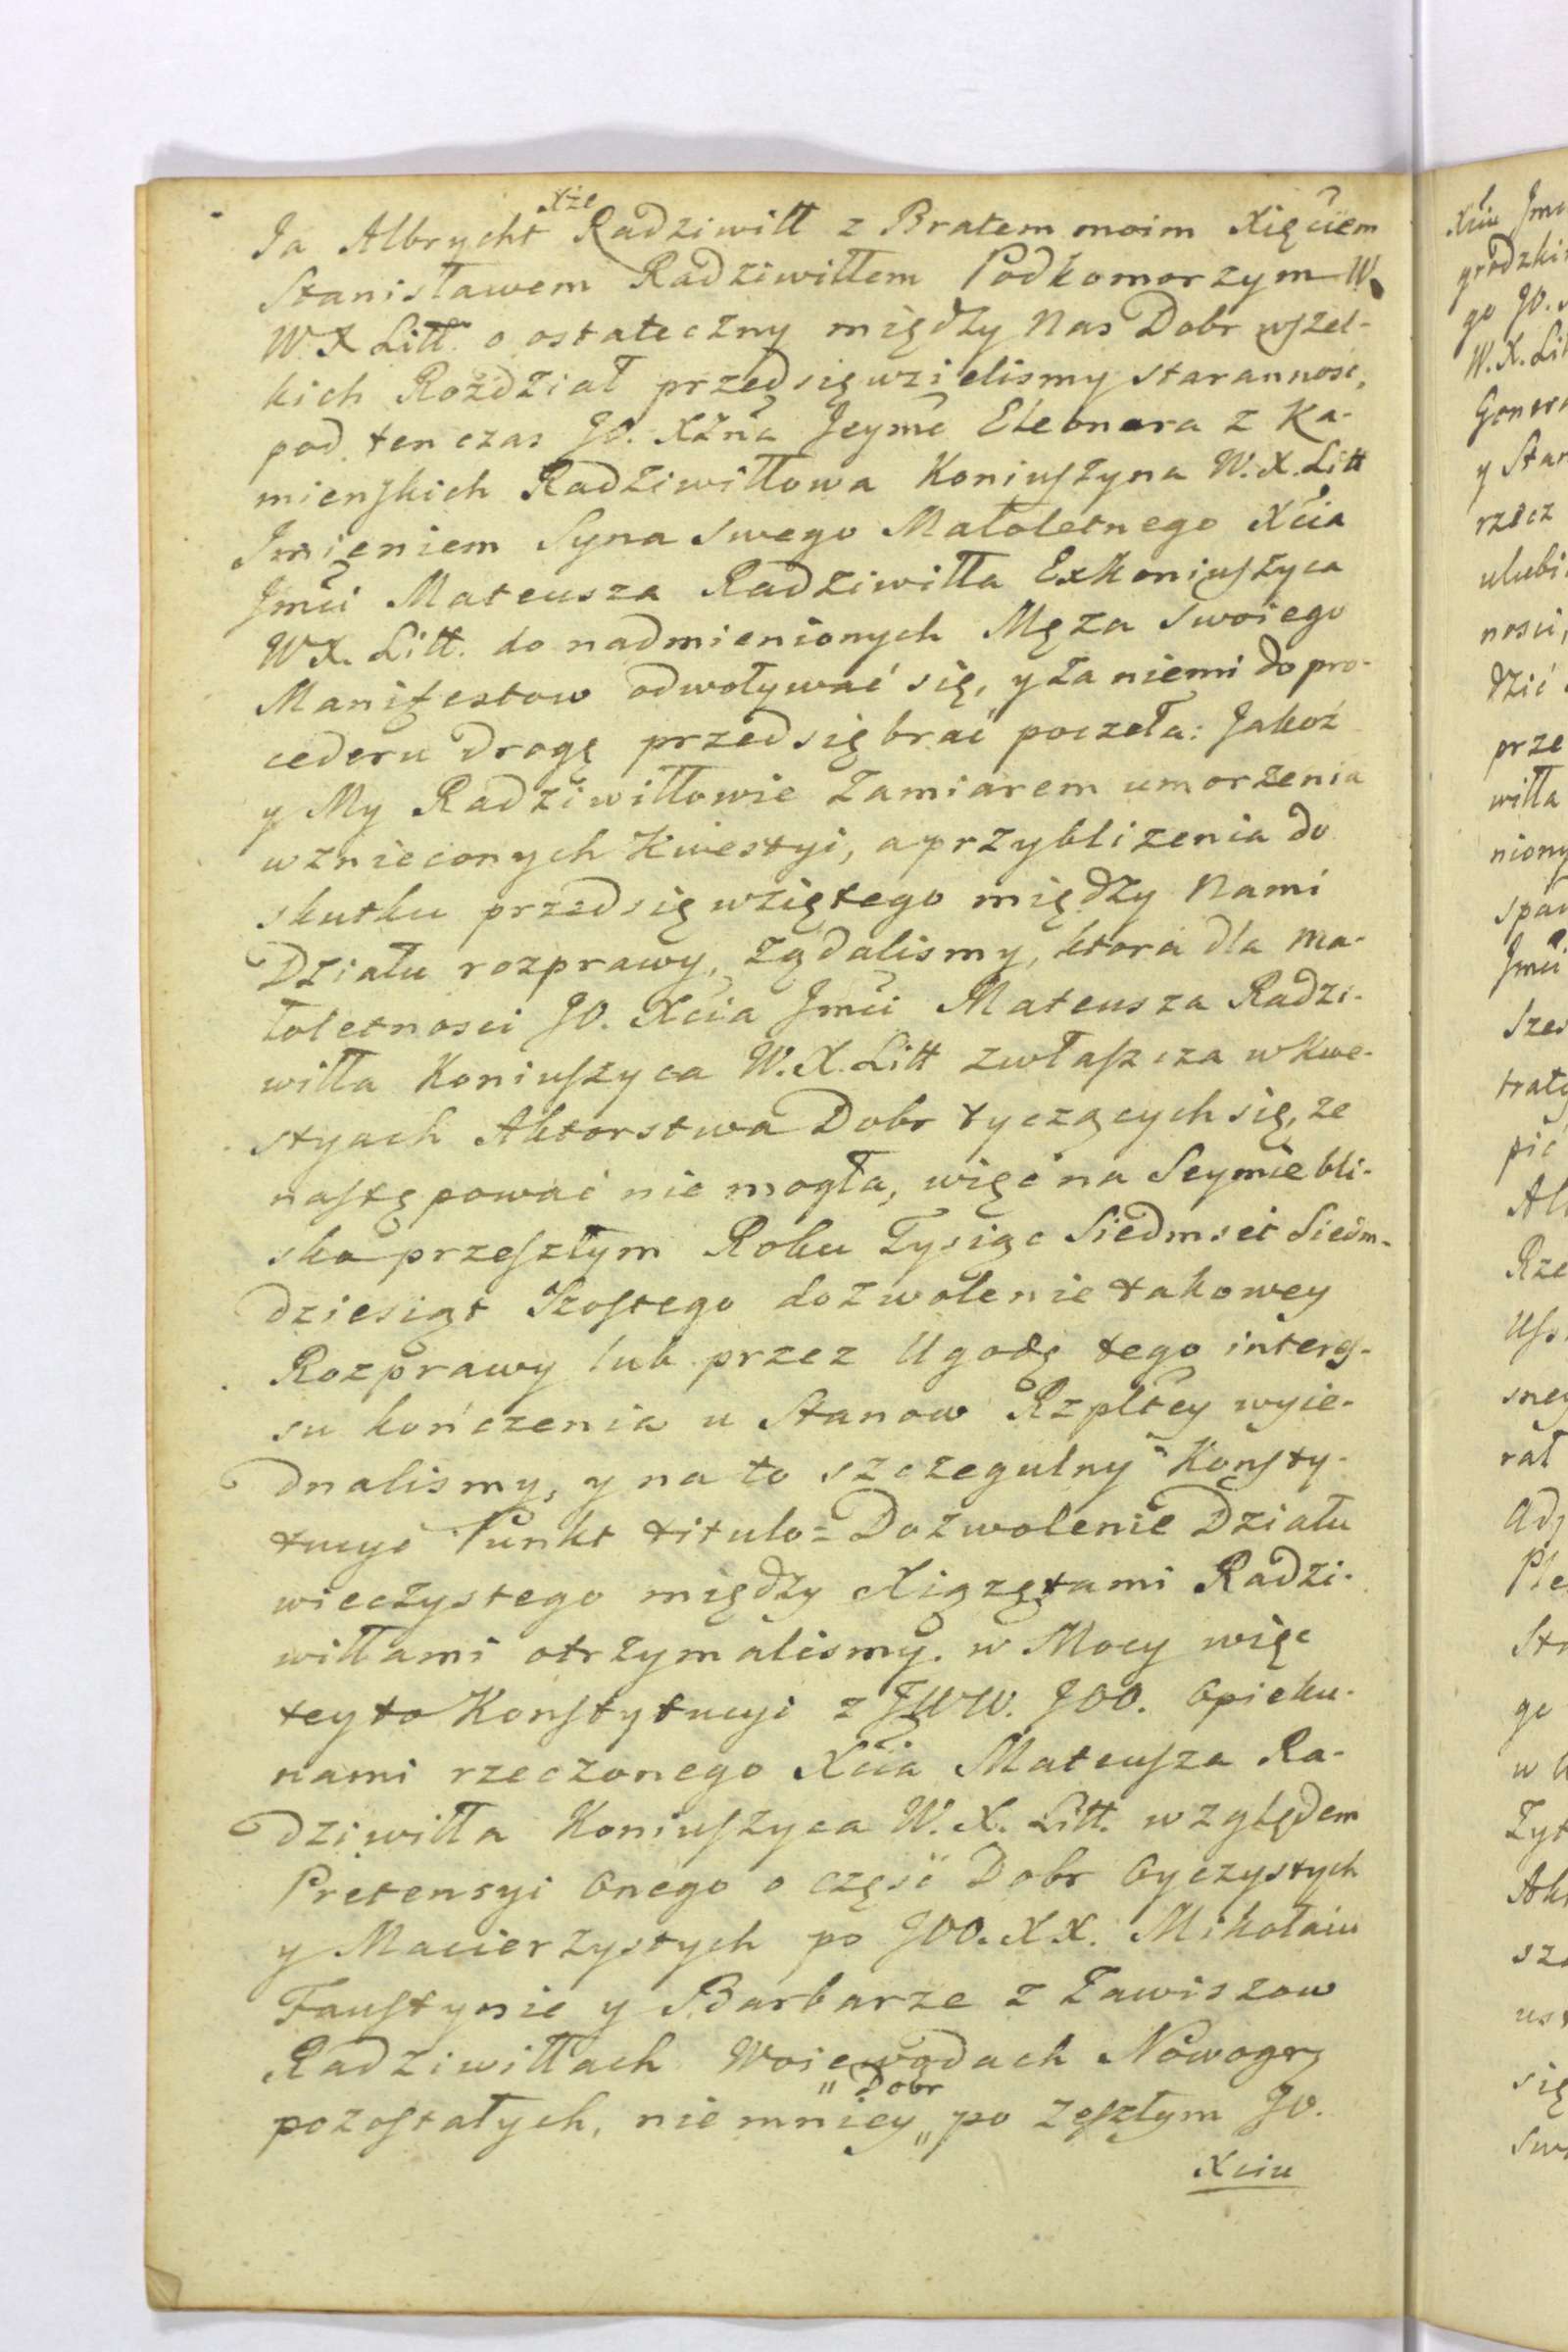 Xże
Ja Albrycht Radziwiłł z Bratem moim Xięciem
Stanisławem Radziwiłłem Podkomorzym W.
W.X Litt. o ostateczny między Nas Dobr wszel-
kich Rozdział przedsięwzielismy starannosc,
pod ten czas JO. Xżna Jeymć Eleonora z Ka-
mienskich Radziwiłłowa Koniuszyna W.X.Litt
Imieniem Syna swego Małoletnego Xcia
Jmci Mateusza Radziwiłła ExKoniuszyca
WX. Litt. do nadmienionych Męza Swoiego
Manifestow odwoływać się, y za niemi do pro-
cederu drogę przedsiębrać poczeła: Jakoż
y My Radziwiłłowie zamiarem umorzenia
wznieconych Kwestyi, a przyblizenia do
skutku przedsięwziętego między Nami
Działu rozprawy, żądalismy, ktora dla Ma-
łoletnosci JO. Xcia Jmci Mateusza Radzi-
wiłła Koniuszyca W.X.Litt zwłaszcza w Kwe-
styach Aktorstwa Dobr tyczących się, ze
nastę pować nie mogła, więc na Seymie bli-
sko przeszłym Roku Tysiąc Siedmset Siedm-
dziesiąt Szostego dozwolenie takowey
Rozprawy lub przez Ugodę tego interes-
su kończenia u Stanow Rzpltey wyie-
dnalismy, y na to szczegulny Konsty-
tucyi Punkt titulo = Dozwolenie Działu
wieczystego między Xiązętami Radzi-
wiłłami otrzymalismy. w Mocy więc
teyto Konstytucyi z JWW. JOO. Opieku-
nami rzeczonego Xcia Mateusza Ra-
dziwiłła Koniuszyca W.X. Litt. względem
Pretensyi Onego o część Dobr Oyczystych
y Macierzystych po JOO.XX. Mikołaiu
Faustynie y Barbarze z Zawiszow
Radziwiłłach Woiewodach Nowogr
" Dobr
pozostałych, niemniey " po zeszłym JO.
Xciu
Xciu Jmc
go JO.
Genera
y Star
rzecz
ulubi
nosci,
dzić
prze
wiłła
niony
Jmci
pić
Rze
rał
go
się